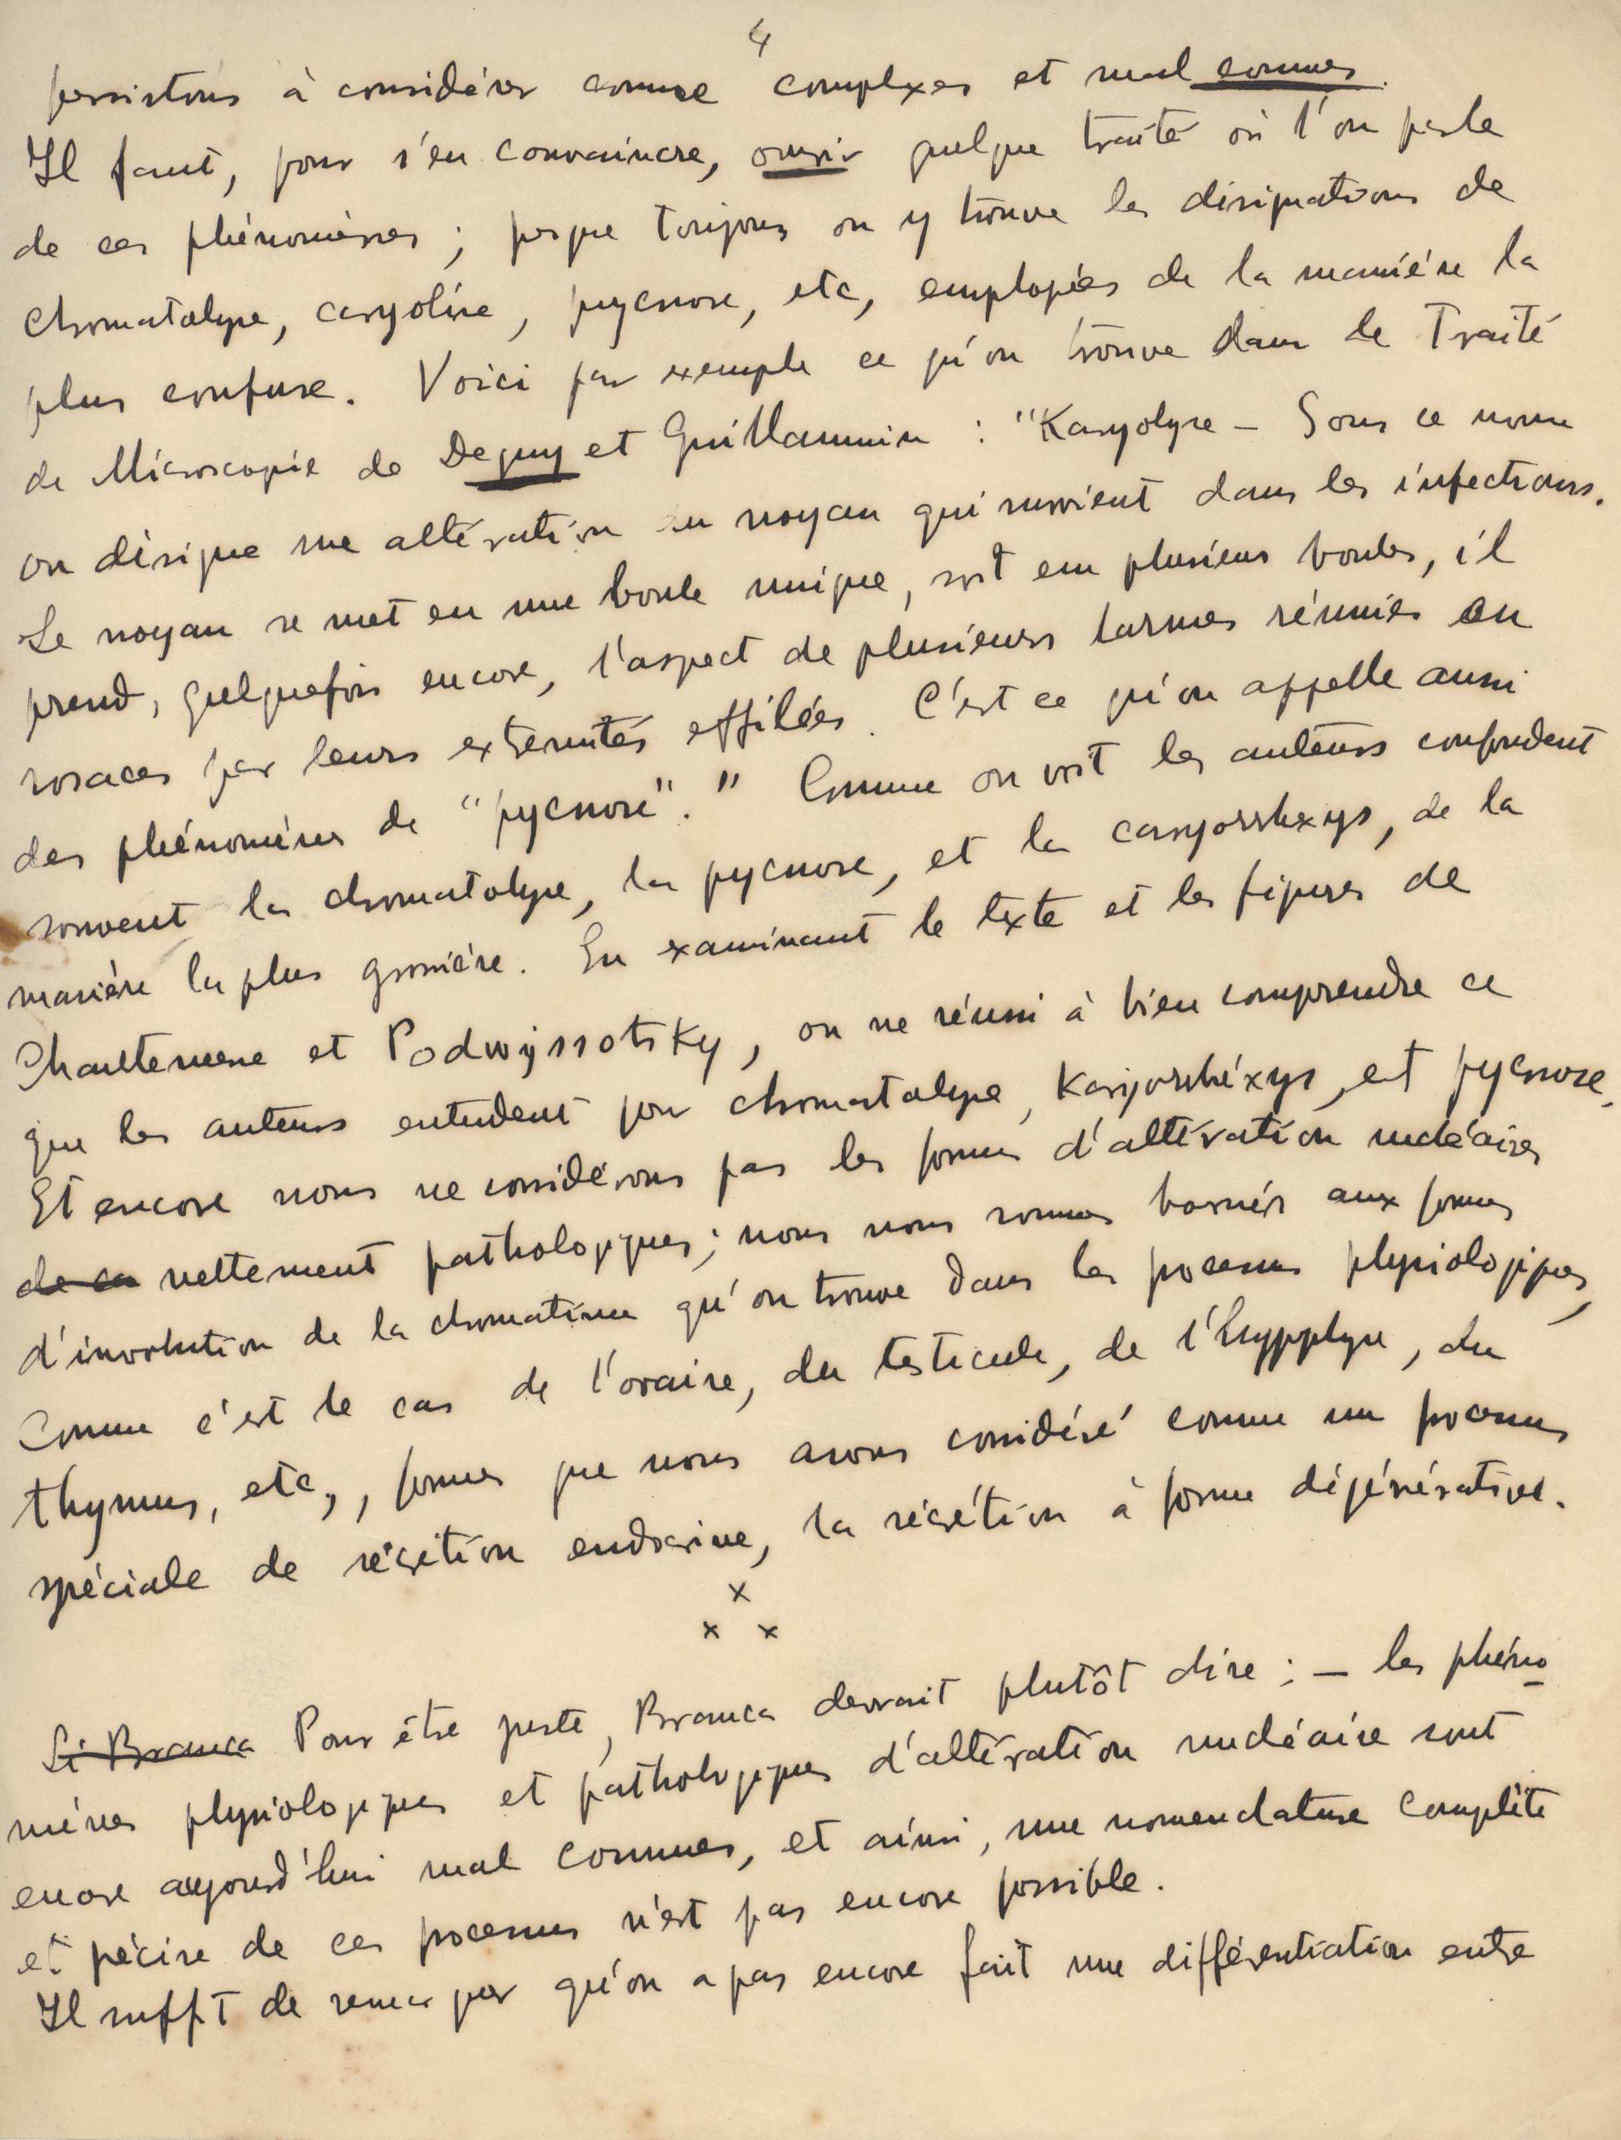 4
persistons à considérer comme complexes et mal connues.
Il faut, pour s'en convaincre, ouvrir quelque traité où l'on parle
de ces phénomènes ; presque toujours on y trouve les désignations de
Chromatolyse, caryolise, pycnose, etc, employées de la manière la
plus confuse. Voici par exemple ce qu'on trouve dans le Traité
de Microscopie de Deguy et Guillaumin : "Karyolyse – Sous ce nom
on désigne une altération du noyau qui survient dans les infections.
Le noyau se met en une boule unique, soit en plusieurs boules, il
prend, quelquefois encore, l'aspect de plusieurs larmes réunies en
rosaces par leurs extremités effilées. C'est ce qu'on appelle aussi
des phénomènes de "pycnose"." Comme on voit les auteurs confondent
souvent la chromatolyse, la pycnose, et la caryorrhexys, de la
manière la plus grossière. En examinant le texte et les figures de
Chantemesse et Podwyssotsky, on ne réussi à bien comprendre ce
que les auteurs entendent par chromatolyse, Karyorrhéxys, et pycnose.
Et encore nous ne considérons pas les formes d'altération nucléaires
de ca nettement pathologiques ; nous nous sommes bornés aux formes
d'involution de la chromatine qu'on trouve dans les processus physiologiques,
comme c'est le cas de l'ovaire, du testicule, de l'hypophyse, du
thymus, etc., formes que nous avons considéré comme un processus
spéciale de sécrétion endocrine, la sécrétion à forme dégénérative.
x
x x
Si Branca Pour être juste, Branca devrait plutôt dire : – les phéno-
mènes physiologiques et pathologiques d'altération nucléaire sont
encore aujourd'hui mal connues, et ainsi, une nomenclature complète
et précise de ces processus n'est pas encore possible.
Il suffit de remarquer qu'on a pas encore fait une différentiation entre